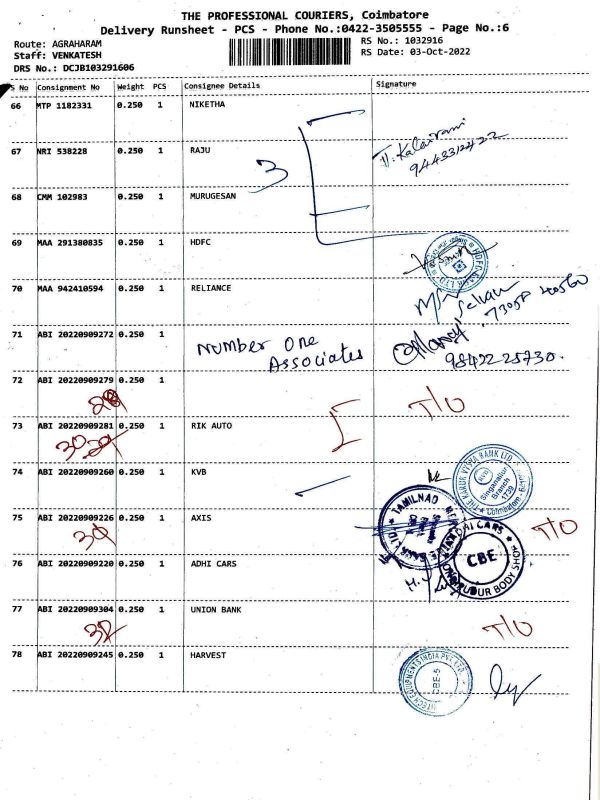 THE PROFESSIONAL COURIERS, Coimbatore
Delivery Runsheet - PCS - Phone No.:0422-3505555 - Page No.:6
Route: AGRAHARAM
Staff: VENKATESH
DRS No.: DCJB103291606
RS No.: 1032916
RS Date: 03-Oct-2022
S No Consignment No Weight PCS Consignee Details Signature
66 MTP 1182331 0.250 1 NIKETHA
67 NRI 538228 0.250 1 RAJU
3
68 CMM 102983 0.250 1 MURUGESAN
69 MAA 291380835 0.250 1 HDFC
70 MAA 942410594 0.250 1 RELIANCE
71 ABI 20220909272 0.250 1 Number One Associates
9842225730.
72 ABI 20220909279 0.250 1
T/O
73 ABI 20220909281 0.250 1 RIK AUTO
74 ABI 20220909260 0.250 1 KVB
THE KARUR VYSYA BANK LTD
Singanallur
Branch
1729
75 ABI 20220909226 0.250 1 AXIS
TAMILNAD
T/O
76 ABI 20220909220 0.250 1 ADHI CARS
CARS
CBE
BODY SHOP
77 ABI 20220909304 0.250 1 UNION BANK
T/O
78 ABI 20220909245 0.250 1 HARVEST
CBE-5